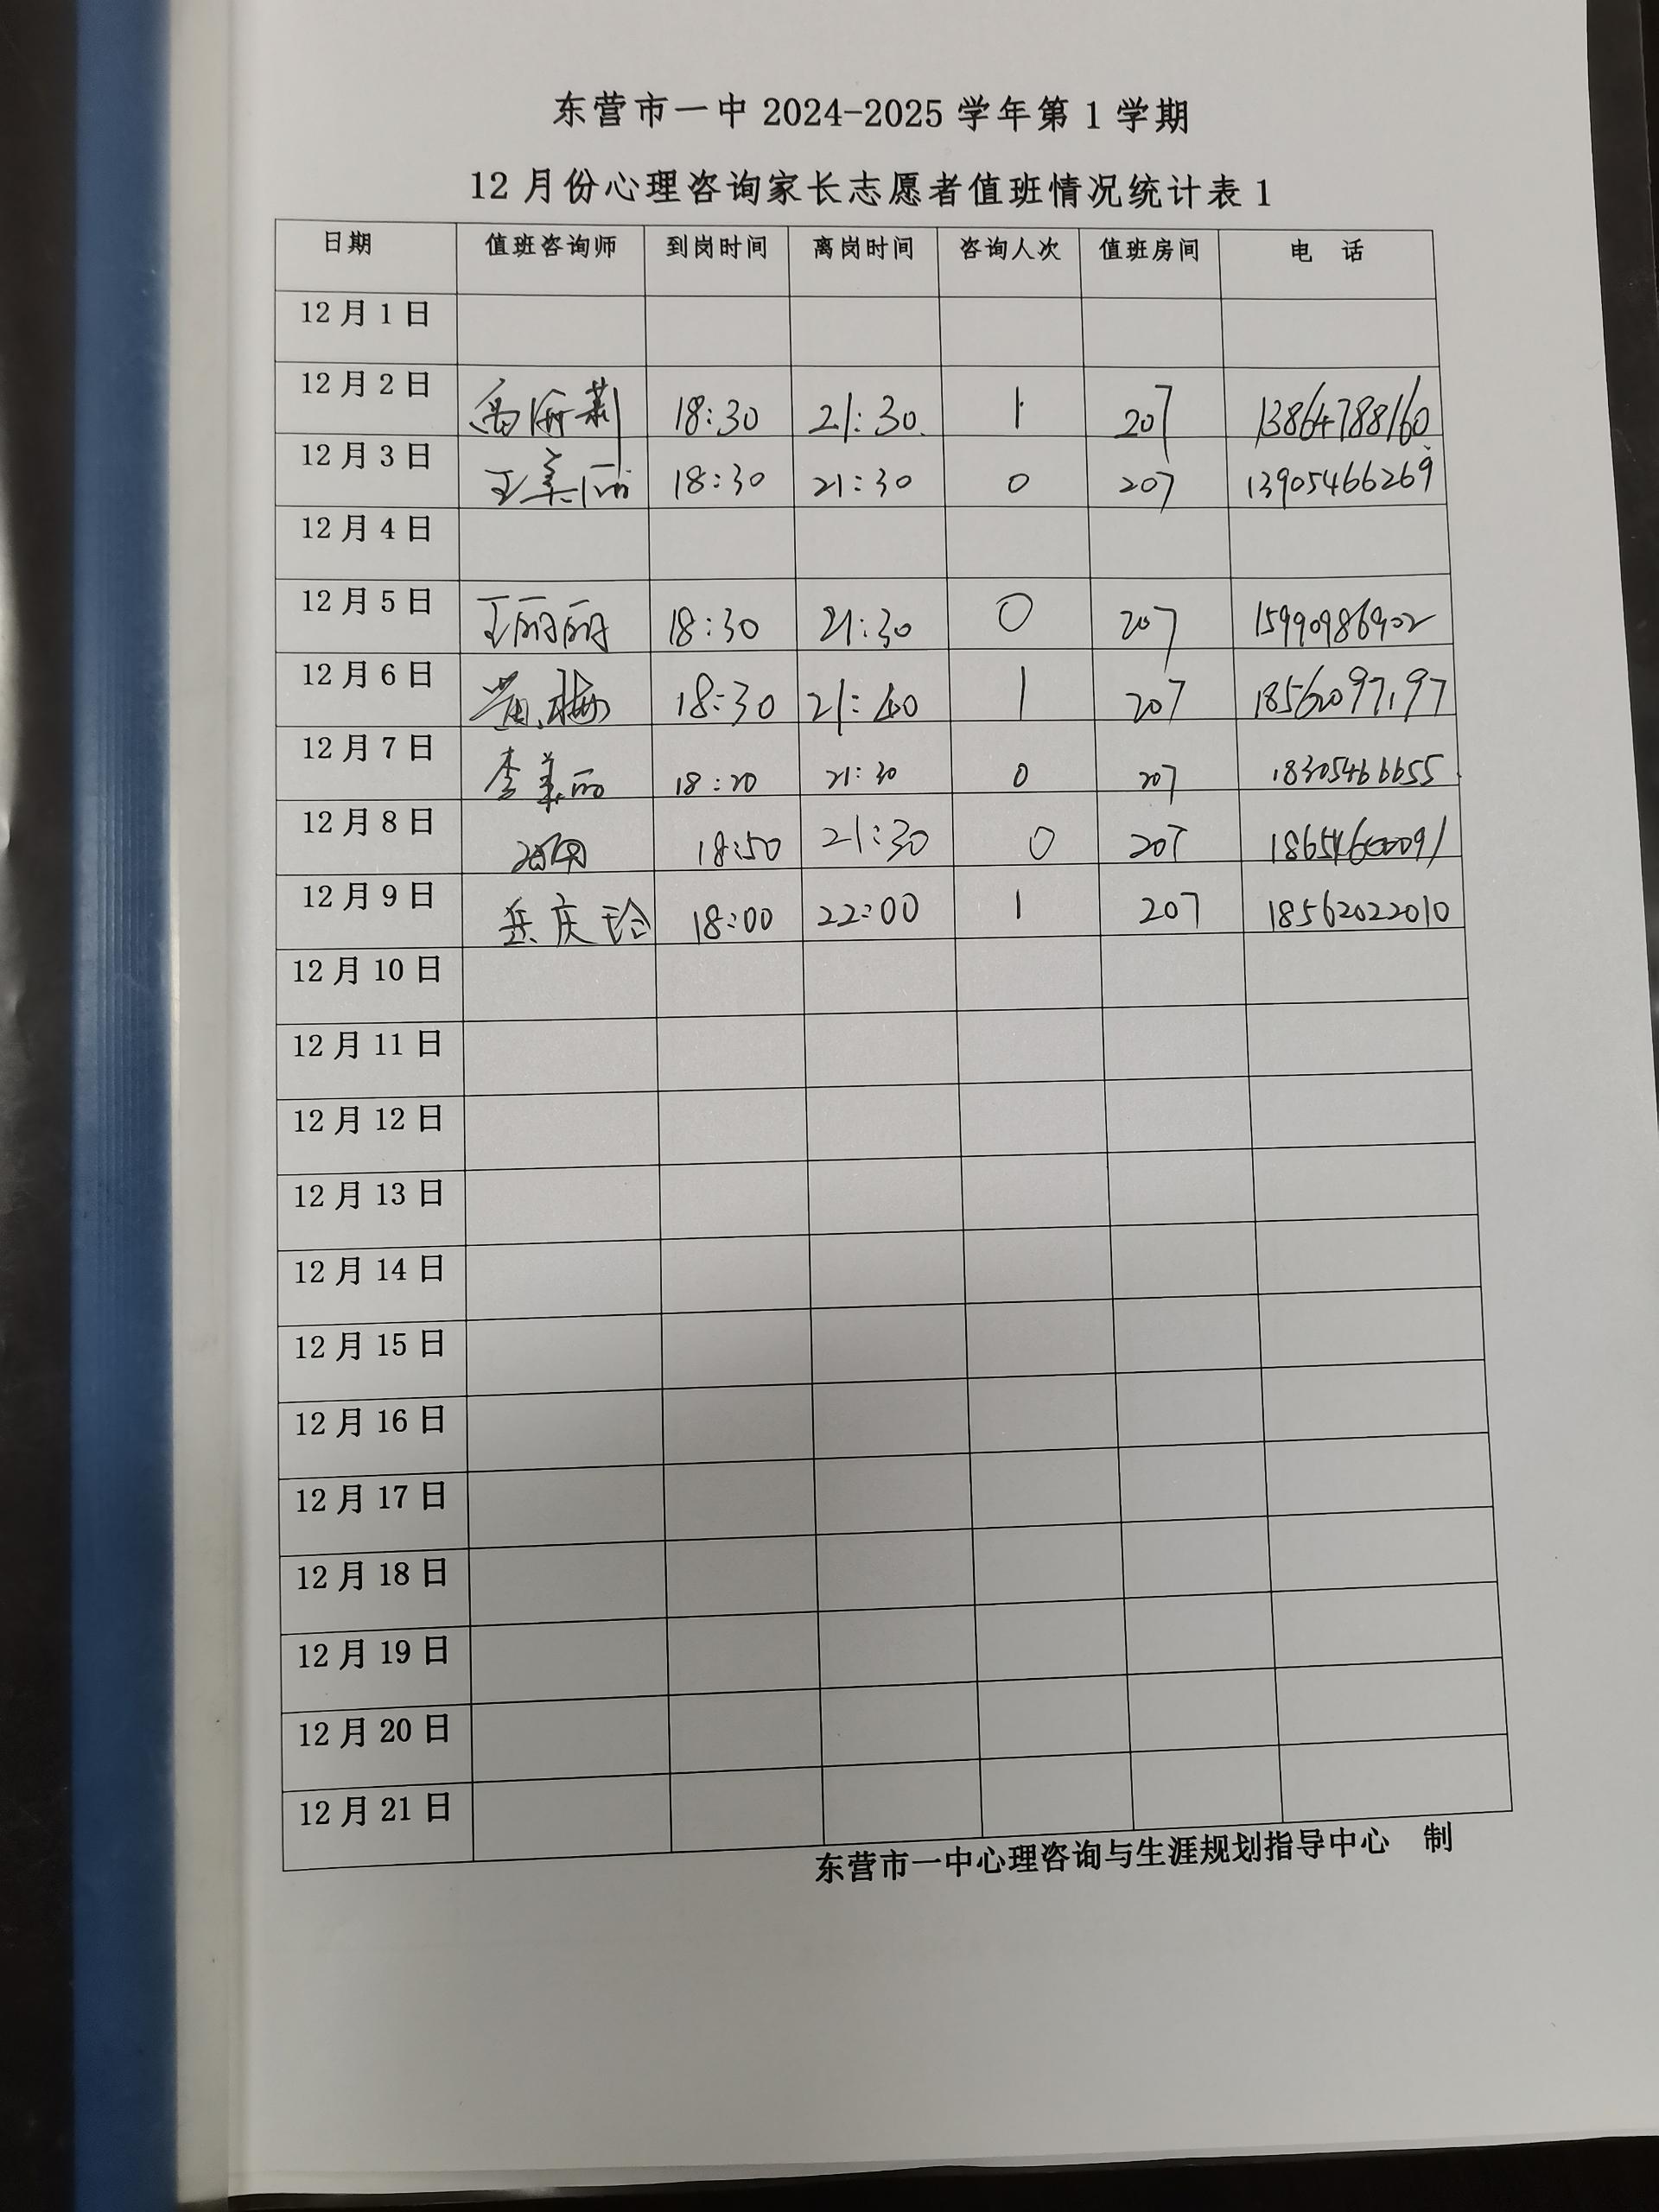 东营市一中 2024-2025 学年第 1 学期
12 月份心理咨询家长志愿者值班情况统计表 1
日期 值班咨询师 到岗时间 离岗时间 咨询人次 值班房间 电 话
12 月 1 日
12 月 2 日 18:30 21:30. 1 207 13864788160
12 月 3 日 王美丽 18:30 21:30 0 207 13905466269
12 月 4 日
12 月 5 日 王丽丽 18:30 21:30 0 207 15990986902
12 月 6 日 黄梅 18:30 21:40 1 207 18562097197
12 月 7 日 李美丽 18:20 21:30 0 207 18305466655
12 月 8 日 18:50 21:30 0 207
12 月 9 日 岳庆玲 18:00 22:00 1 207 18562022010
12 月 10 日
12 月 11 日
12 月 12 日
12 月 13 日
12 月 14 日
12 月 15 日
12 月 16 日
12 月 17 日
12 月 18 日
12 月 19 日
12 月 20 日
12 月 21 日
东营市一中心理咨询与生涯规划指导中心 制